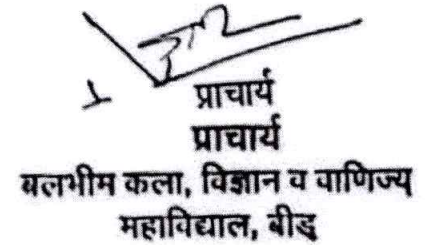 प्राचार्य
प्राचार्य
बलभीम कला, विज्ञान व वाणिज्य
महाविद्याल, बीड